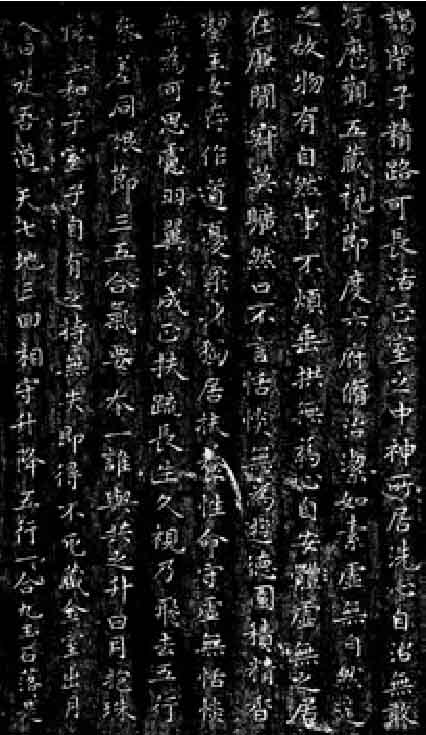 關子精路可長活正室之中神所居洗心自治無敢
汙歷觀五藏視節度六府脩治潔如素虛無自然道
之故物有自然事不煩垂拱無為心自安體虛無之居
在廉間寂莫曠然口不言恬惔無為遊德園積精香
潔玉女存作道憂柔身獨居扶養性命守虛無恬惔
無為何思慮羽翼以成正扶疏長生久視乃飛去五行
參差同根節三五合氣要本一誰與共之升日月抱珠
懷玉和子室子自有之持無失即得不死藏金室出月
入日是吾道天七地三回相守升降五行一合九玉石落是